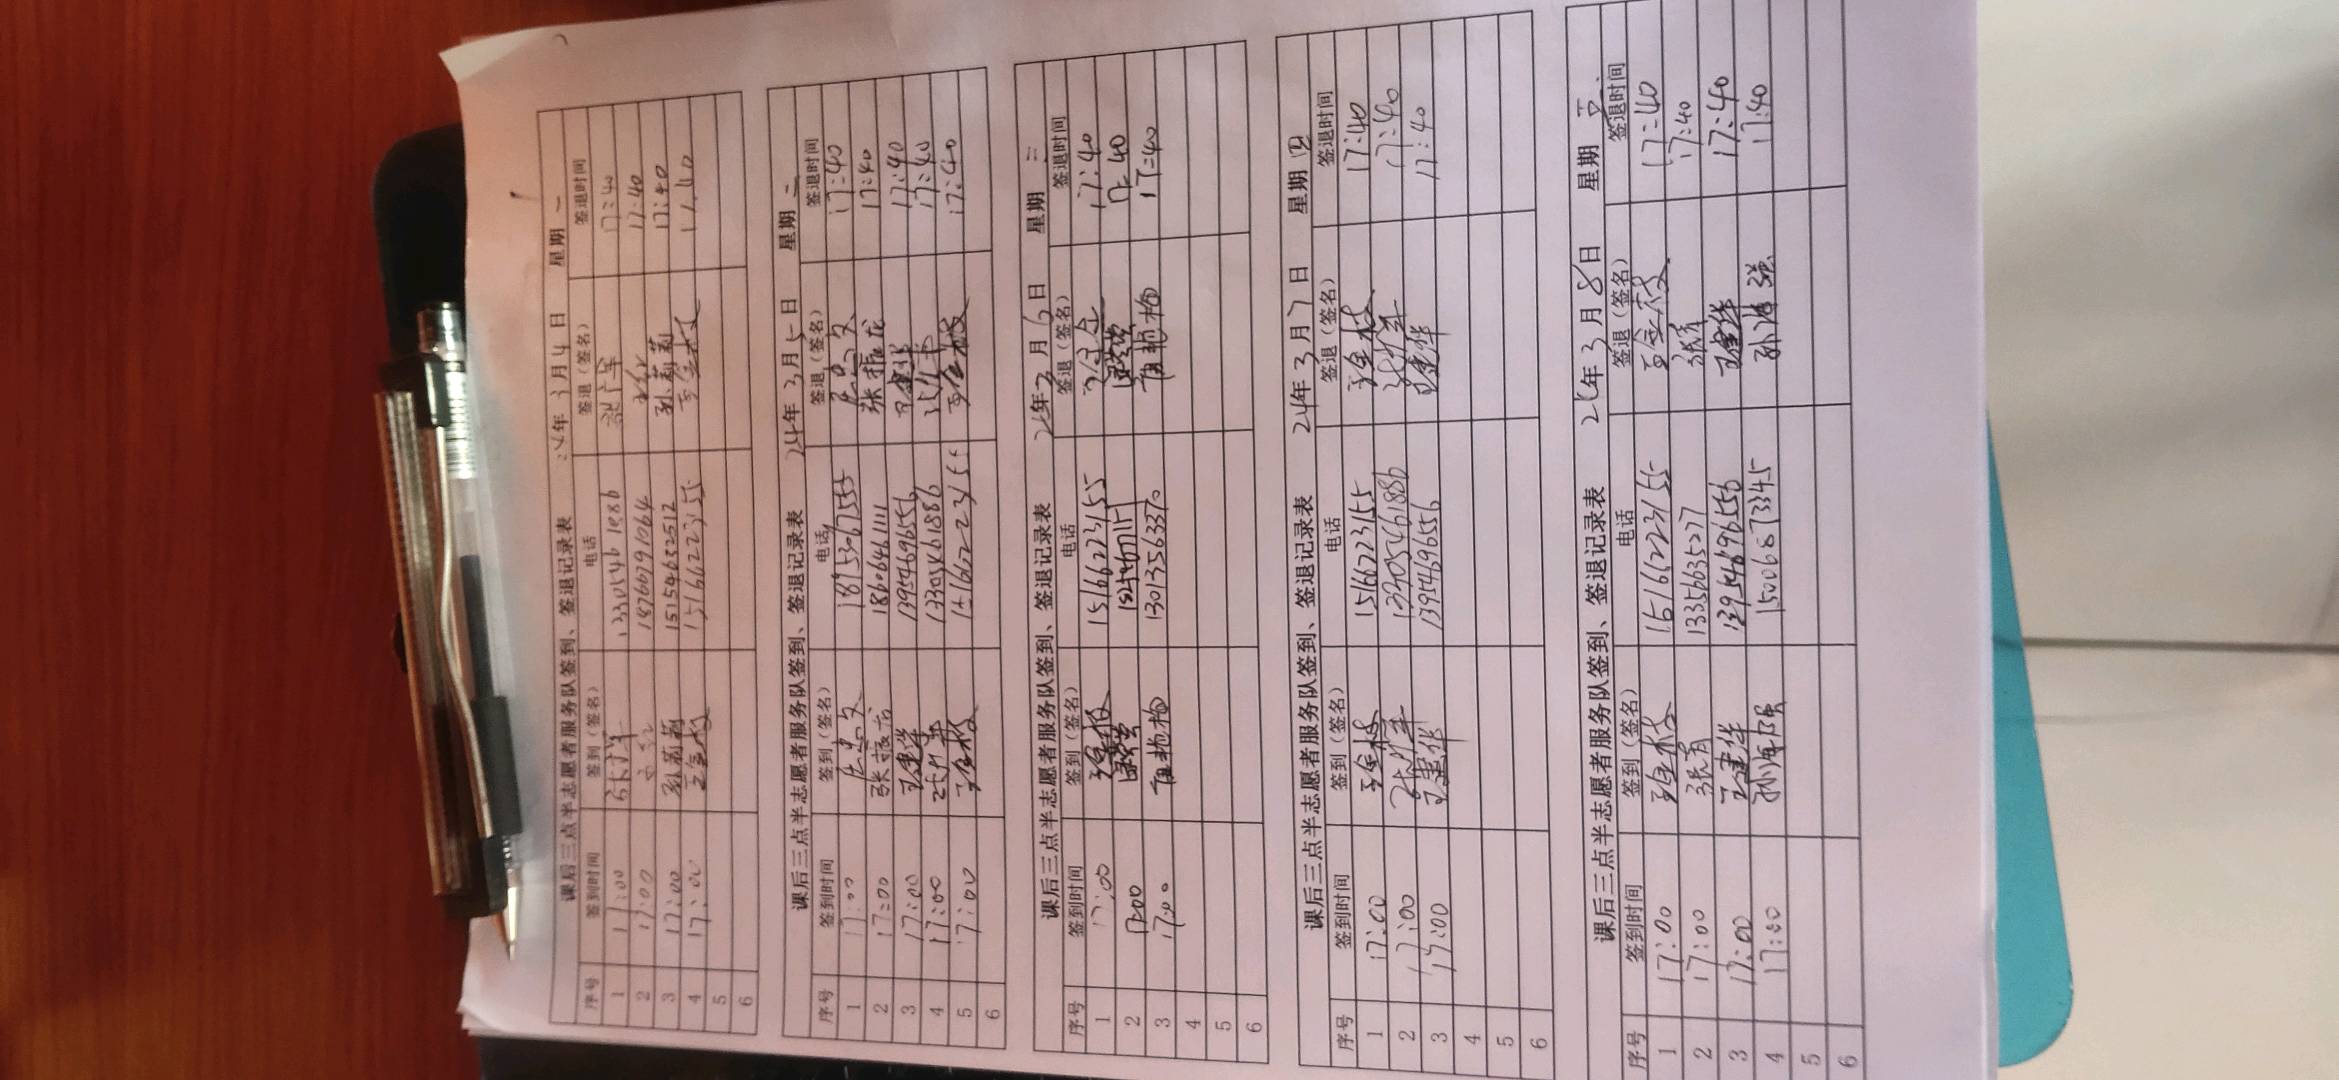 课后三点半志愿者服务队签到、签退记录表 24年3月4日 星期一
序号 签到时间 签到（签名） 电话 签退（签名） 签退时间
1 17:00 13305461886 17:40
2 17:00 18766791064 17:40
3 17:00 孙莉莉 15154632512 孙莉莉 17:40
4 17:00 王金枝 15166223155 王金枝 17:40
5
6
课后三点半志愿者服务队签到、签退记录表 24年3月5日 星期二
序号 签到时间 签到（签名） 电话 签退（签名） 签退时间
1 17:00 17:40
2 17:00 张振龙 18606461111 张振龙 17:40
3 17:00 王建华 13954696556 王建华 17:40
4 17:00 13305461886 17:40
5 17:00 王金枝 15166223155 王金枝 17:40
6
课后三点半志愿者服务队签到、签退记录表 24年3月6日 星期三
序号 签到时间 签到（签名） 电话 签退（签名） 签退时间
1 17:00 王金枝 15166223155 17:40
2 17:00 17:40
3 17:00 崔艳梅 13013556337 崔艳梅 17:40
4
5
6
课后三点半志愿者服务队签到、签退记录表 24年3月7日 星期四
序号 签到时间 签到（签名） 电话 签退（签名） 签退时间
1 17:00 王金枝 15166223155 王金枝 17:40
2 17:00 13305461886 17:40
3 17:00 王建华 13954696556 王建华 17:40
4
5
6
课后三点半志愿者服务队签到、签退记录表 24年3月8日 星期五
序号 签到时间 签到（签名） 电话 签退（签名） 签退时间
1 17:00 王金枝 15166223155 王金枝 17:40
2 17:00 13356635277 17:40
3 17:00 王建华 13954696556 王建华 17:40
4 17:00 15006873345 17:40
5
6